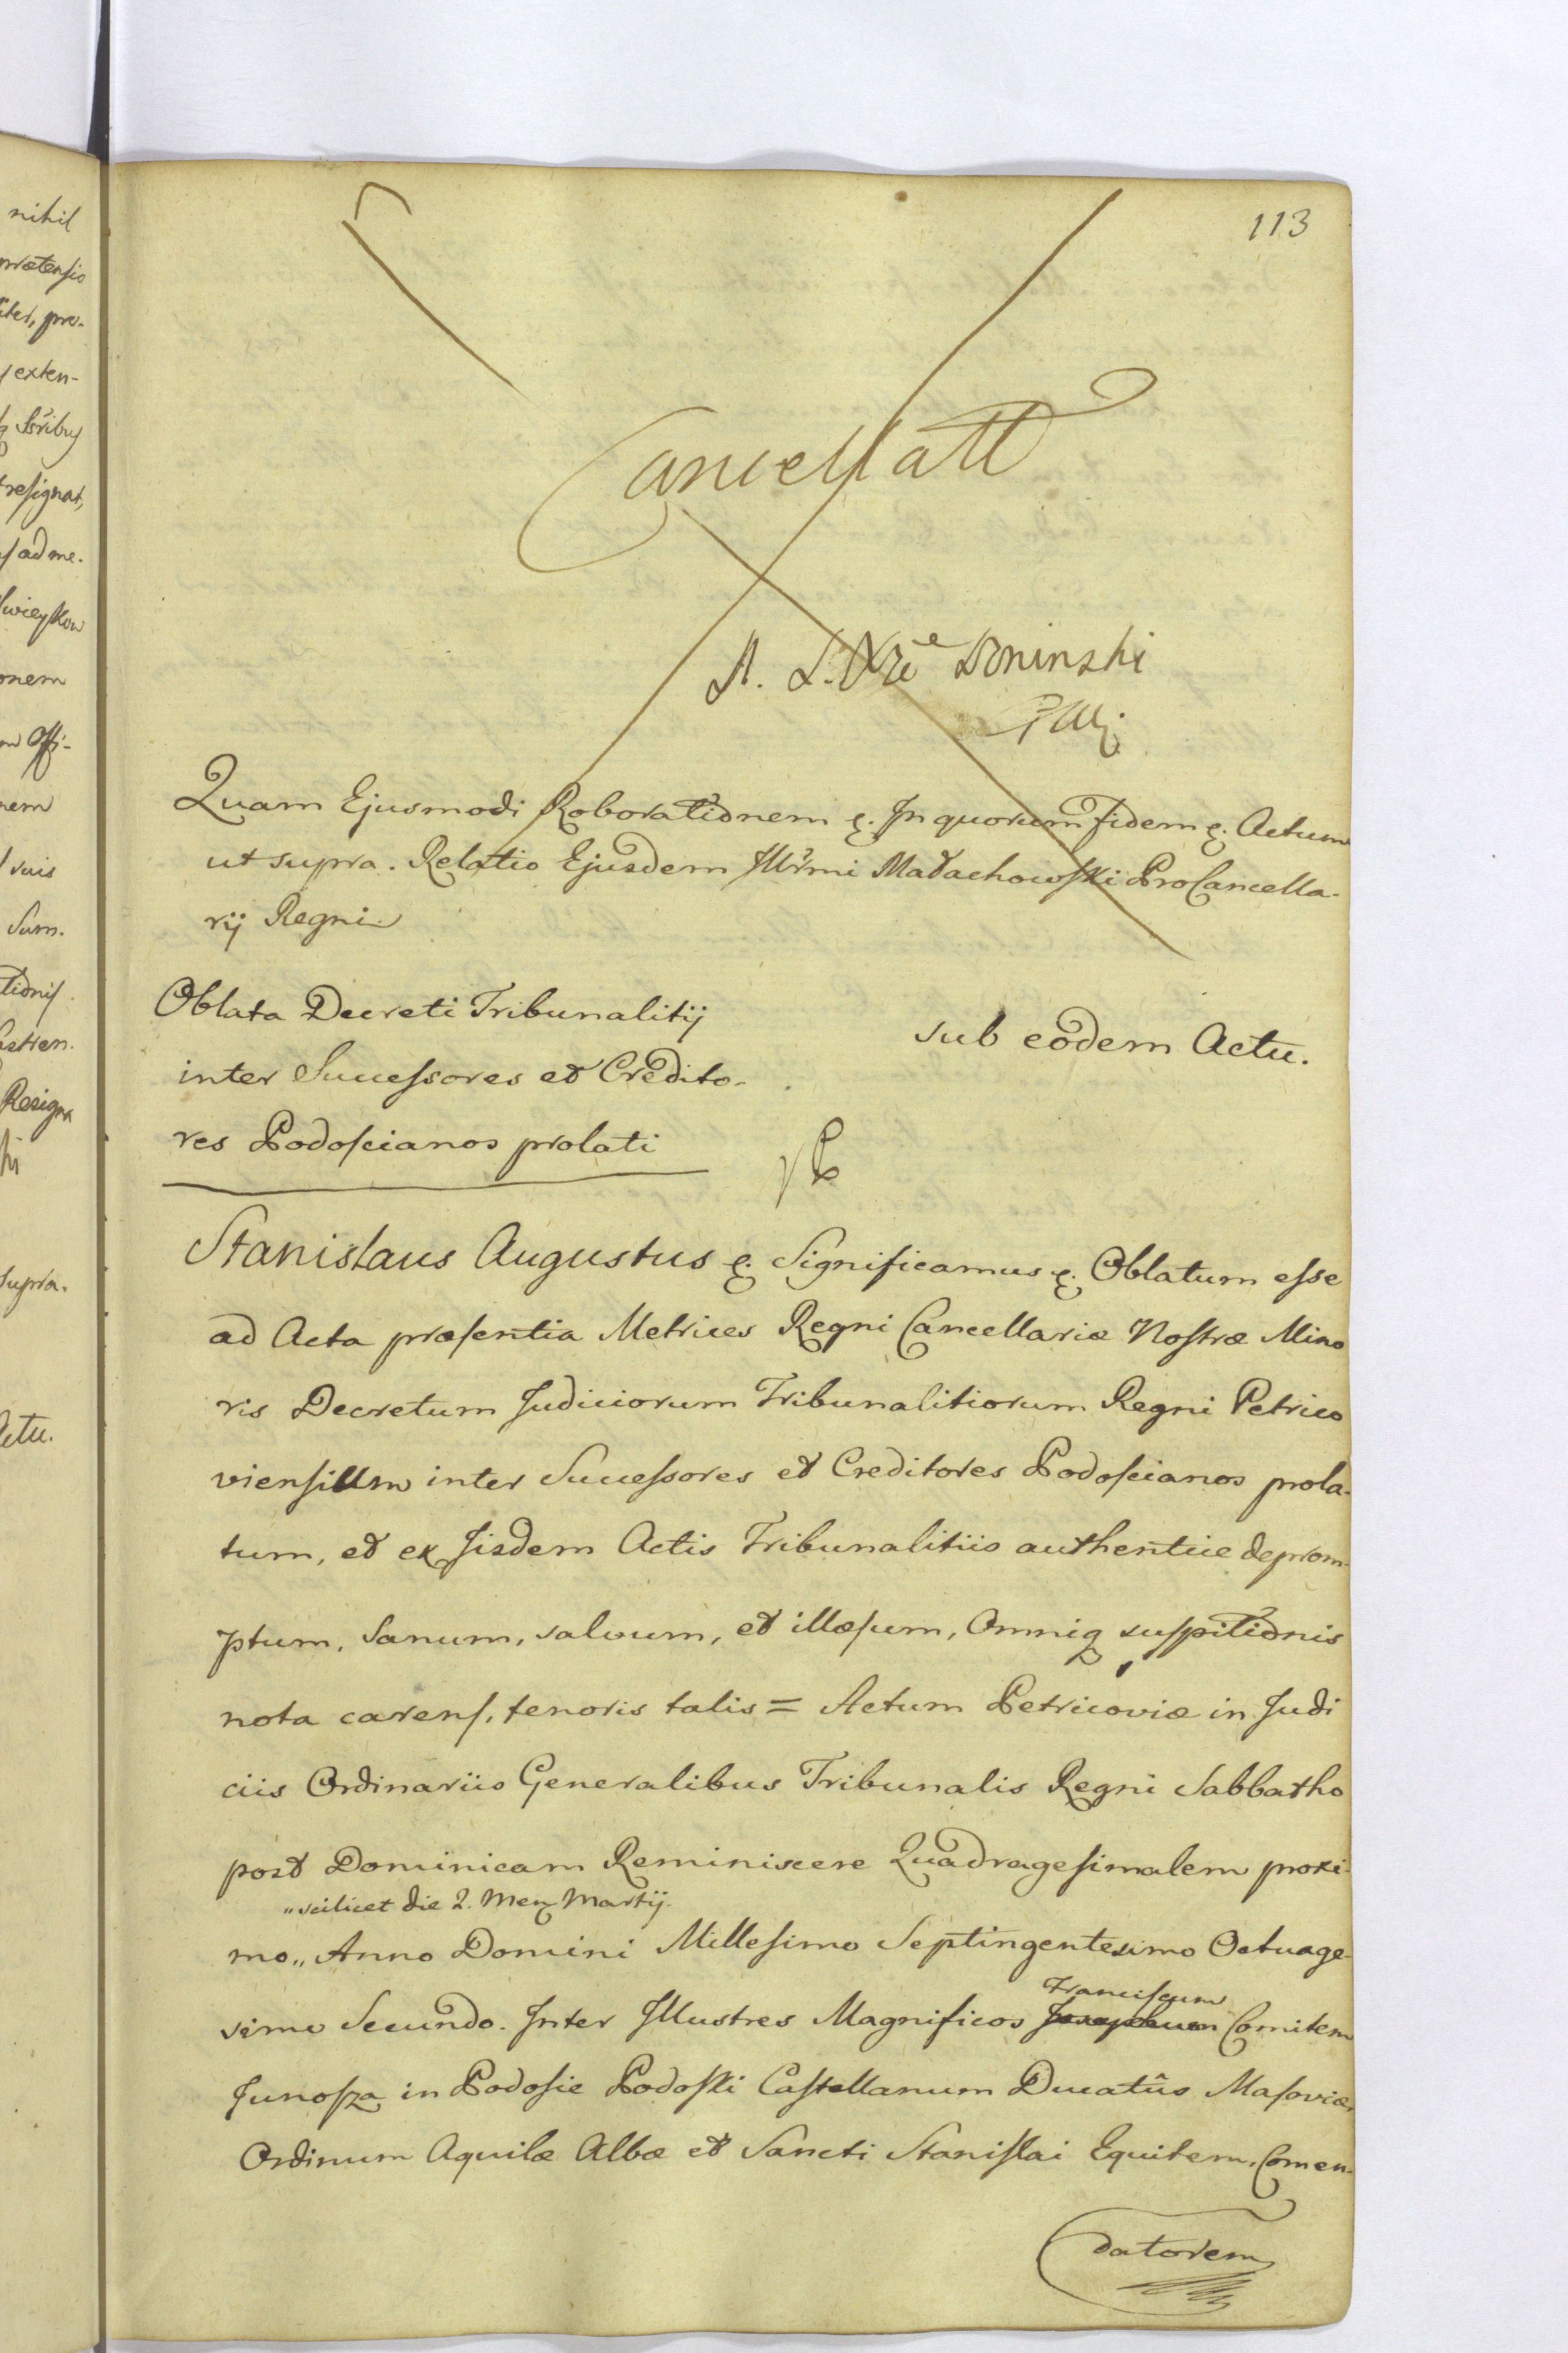 nihil
prætensio
pro-
exten-
resignat,
ad me.
onem
Offi-
nem
suis
Sum.
Resigna
supra.
Actu.
113
Cancellatt
Łoninski
Quam Ejusmodi Roborationem &. In quorum fidem &. Actum
ut supra. Relatio Ejusdem Illrmi Małachowski ProCancella-
rij Regni
Oblata Decreti Tribunalitij
inter Successores et Credito-
res Podoscianos prolati
sub eodem Actu.
Stanislaus Augustus &. Significamus &. Oblatum esse
ad Acta præsentia Metrices Regni Cancellariæ Nostræ Mino
ris Decretum Judiciorum Tribunalitiorum Regni Petrico
viensium inter Successores et Creditores Podoscianos prola-
tum, et ex Iisdem Actis Tribunalitiis authentice deprom-
ptum, Sanum, salvum, et illæsum, Omniq suspitionis
nota carens, tenoris talis = Actum Petricoviæ in Judi
ciis Ordinariis Generalibus Tribunalis Regni Sabbatho
post Dominicam Reminiscere Quadragesimalem proxi-
„scilicet die 2. Men Martij.
mo„ Anno Domini Millesimo Septingentesimo Octuage-
simo Secundo. Inter Illustres Magnificos Josephum Franciscum Comitem
Junosza in Podosie Podoski Castellanum Ducatûs Masoviæ,
Ordinum Aquilæ Albæ et Sancti Stanislai Equitem, Comen-
datorem